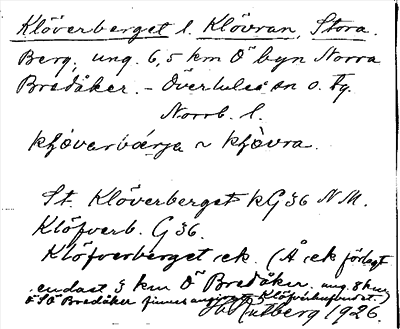 Klöverberget l. Klövran, Stora.
Berg, ung. 6,5 km Ö byn Norra
Bredåker. - Överluleå sn o. tg.
Norrb. l.
kḷövərbärja ~ kḷövra.
St. Klöverberget kG 36 NM.
Klöfverb. G 36.
Klöfverberget ek. (Å ek förlagt
endast 3 km Ö Bredåker. ung. 8 km
ÖSÖ Bredåker finnes angivet Klöfverhufvudet.)
Hultberg 1926.